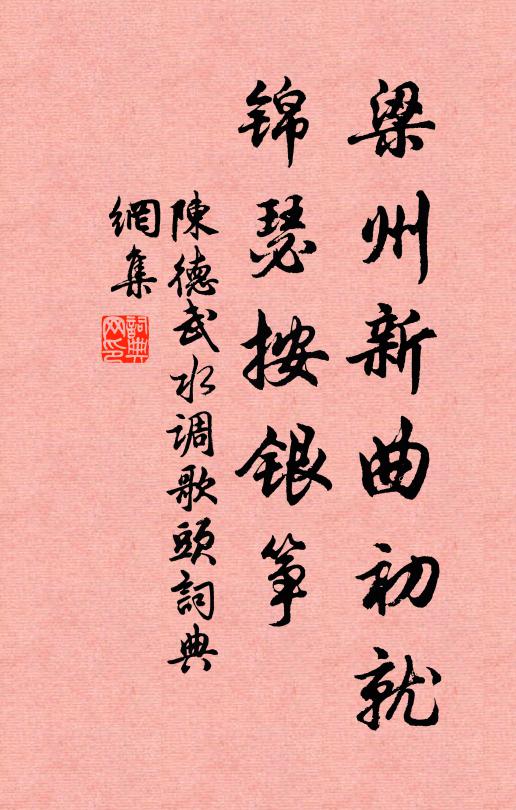 梁州新曲初就
锦瑟按银筝
陳德武水调歌頭詞典
網集
詞典網印